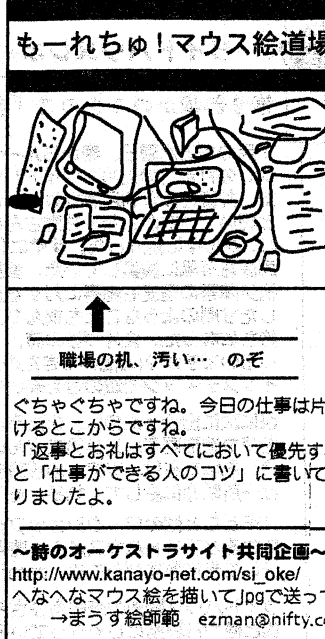 もーれちゅ!マウス絵道場
職場の机、汚い… のぞ
ぐちゃぐちゃですね。今日の仕事は片
けるとこからですね。
「返事とお礼はすべてにおいて優先す
と「仕事ができる人のコツ」に書いて
りましたよ。
〜詩のオーケストラサイト共同企画〜
http://www.kanayo-net.com/si_oke/
へなへなマウス絵を描いてjpgで送っ
→まうす絵師範 ezman@nifty.c